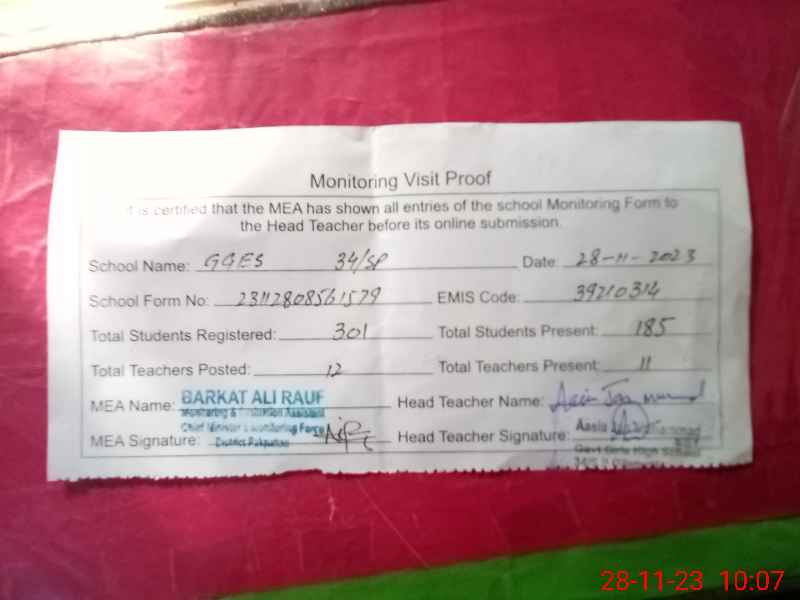 Monitoring Visit Proof
It is certified that the MEA has shown all entries of the school Monitoring Form to
the Head Teacher before its online submission.
School Name: GGES 34/SP Date: 28-11-2023
School Form No: 23112808561579 EMIS Code: 39210314
Total Students Registered: 301 Total Students Present: 185
Total Teachers Posted: 12 Total Teachers Present: 11
MEA Name: BARKAT ALI RAUF Head Teacher Name:
Monitoring & Assistant
Chief Minister's Monitoring Force
MEA Signature: District Pakpattan Head Teacher Signature: Aasia
Govt Girls High School
28-11-23 10:07